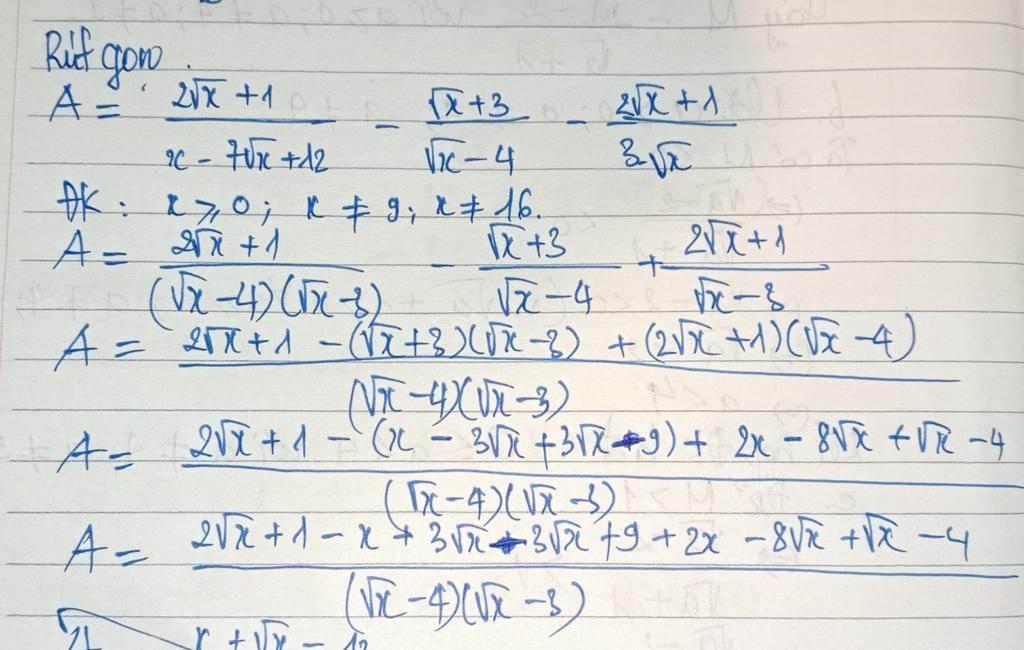 Rút gọn.
A = (2√x + 1)/(x - 7√x + 12) - (√x + 3)/(√x - 4) - (2√x + 1)/(3-√x)
ĐK: x ⩾ 0; x ≠ 9; x ≠ 16.
A = (2√x + 1)/((√x - 4)(√x - 3)) - (√x + 3)/(√x - 4) + (2√x + 1)/(√x - 3)
A = (2√x + 1 - (√x + 3)(√x - 3) + (2√x + 1)(√x - 4))/((√x - 4)(√x - 3))
A = (2√x + 1 - (x - 3√x + 3√x - 9) + 2x - 8√x + √x - 4)/((√x - 4)(√x - 3))
A = (2√x + 1 - x + 3√x - 3√x + 9 + 2x - 8√x + √x - 4)/((√x - 4)(√x - 3))